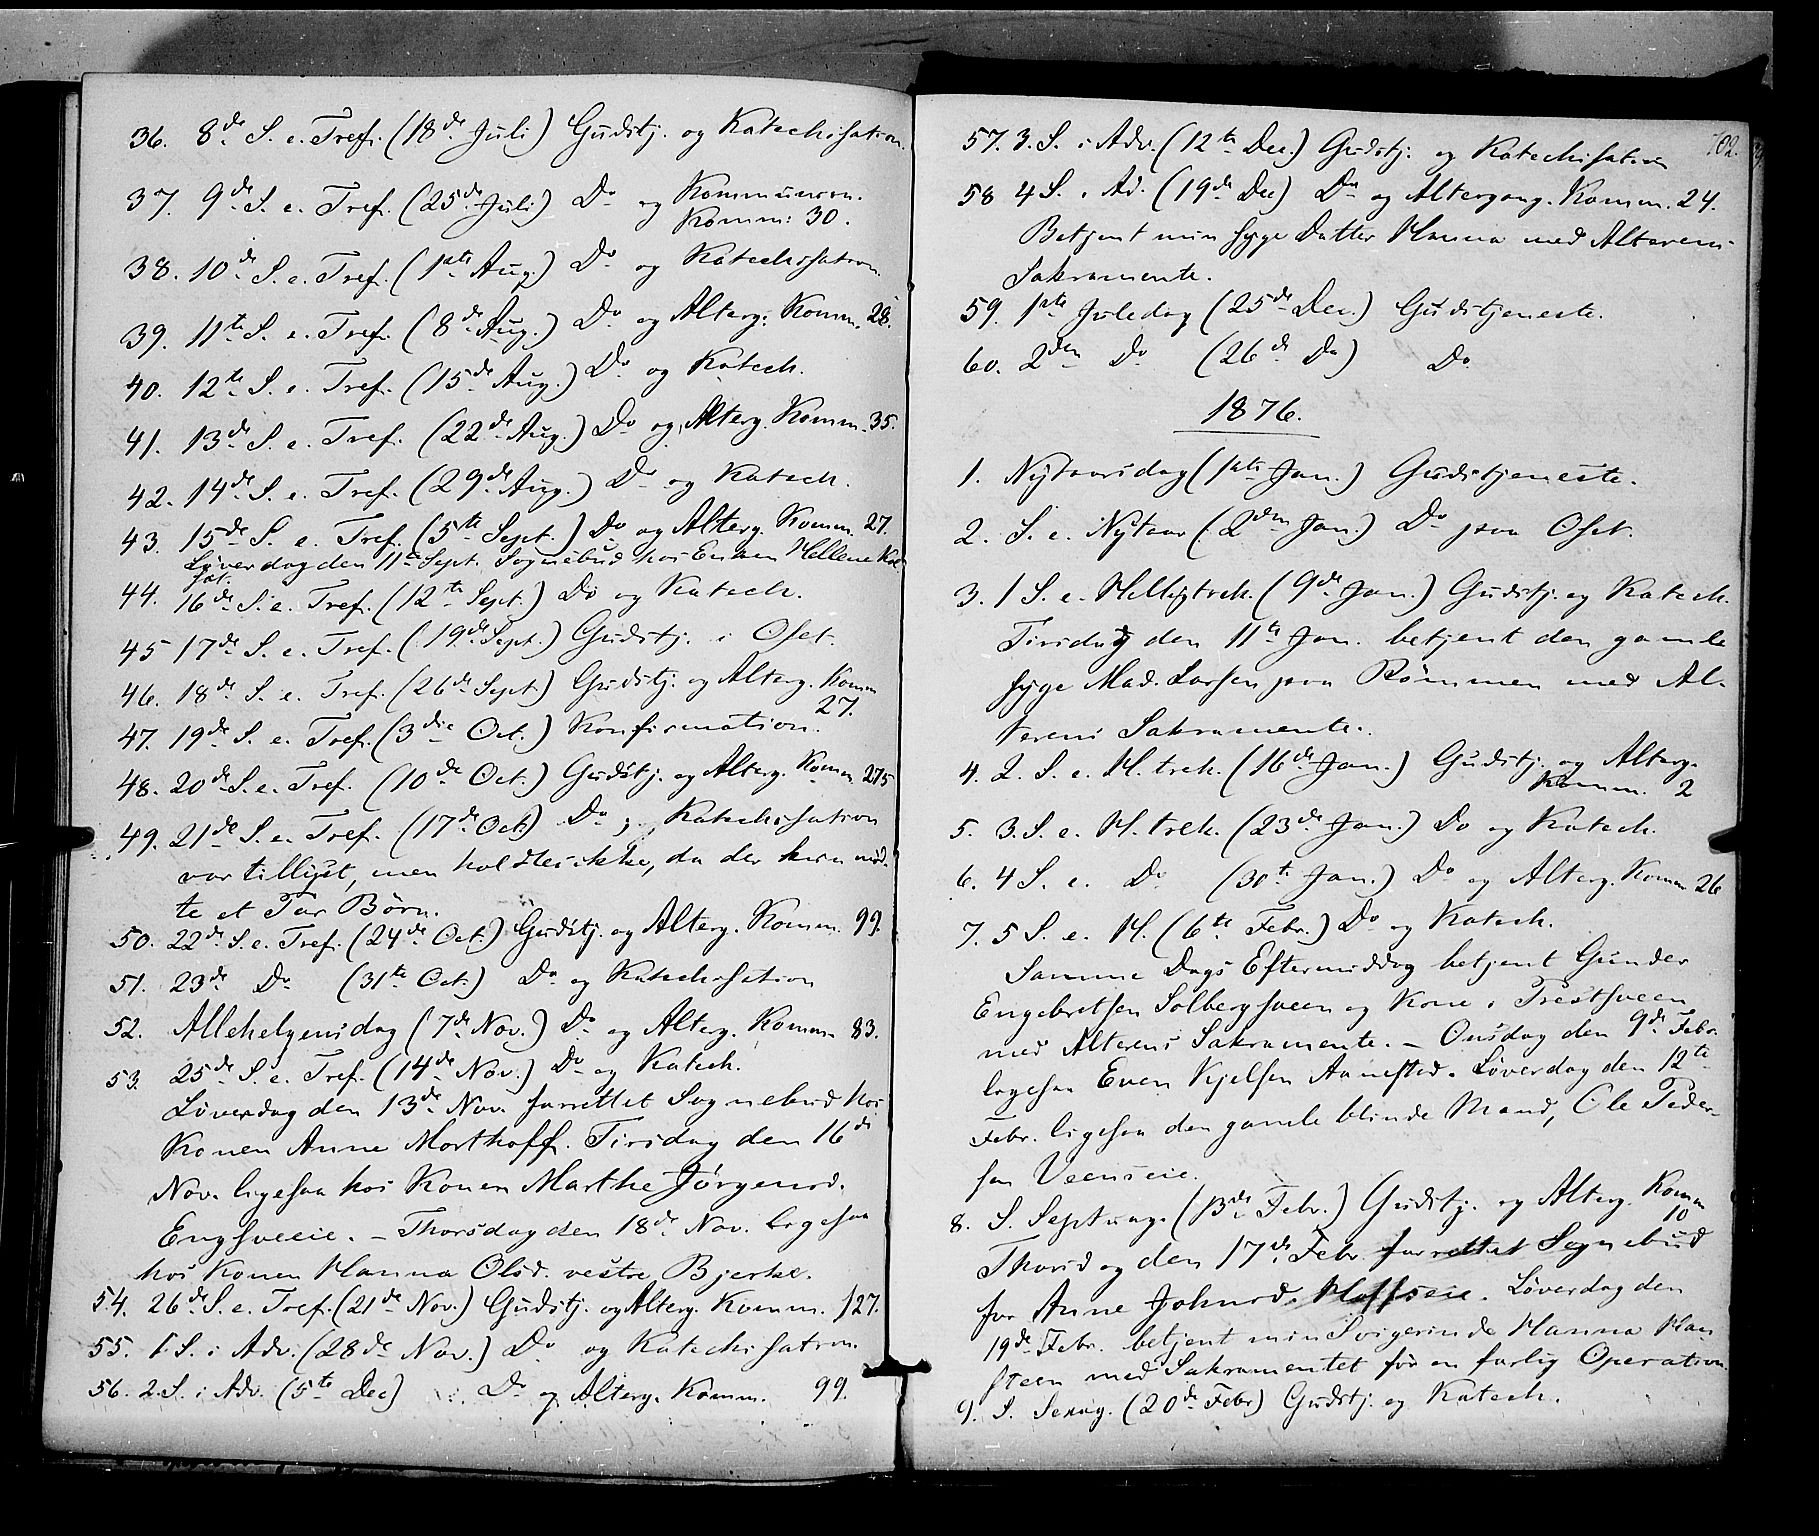 36. 8de S. e. Tref. (18de Juli) Gudstj. og Katechisation.
37. 9de S. e. Tref. (25de Juli) Do og Kommunion.
Komm: 30.
38. 10de S. e. Tref. (1ste Aug.) Do og Katechisation.
39. 11te S. e. Tref. (8de Aug.) Do og Alterg. Komm. 28.
40. 12te S. e. Tref. (15de Aug.) Do og Katech.
41. 13de S. e. Tref. (22de Aug.) Do og Alterg. Komm. 35.
42. 14de S. e. Tref. (29de Aug.) Do og Katech.
43. 15de S. e. Tref. (5te Sept.) Do og Alterg. Komm. 27.
Løverdag den 11te Sept. Sognebud hos Enken Hellene
44. 16de S. e. Tref. (12te Sept.) Do og Katech.
45 17de S. e. Tref. (19de Sept.) Gudstj. i Oset.
46. 18de S. e. Tref. (26de Sept.) Gudstj. og Alterg. Komm
27.
47. 19de S. e. Tref. (3die Oct.) Konfirmation.
48. 20de S. e. Tref. (10de Oct.) Gudstj. og Alterg. Komm 275
49. 21de S. e. Tref. (17de Oct.) Do; Katechisation
var tillyst, men holdtes ikke, da der kun mød-
te et Par Børn.
50. 22de S. e. Tref. (24de Oct.) Gudstj. og Alterg. Komm. 99.
51. 23de Do (31te Oct.) Do og Katechisation
52. Allehelgensdag (7de Nov.) Do og Alterg. Komm 83.
53. 25de S. e. Tref. (14de Nov.) Do og Katech.
Løverdag den 13de Nov. forrettet Sognebud hos
Konen Anne Morthoff. Tirsdag den 16de
Nov. ligesaa hos Konen Marthe Jørgensd.
Engsveeie. – Thorsdag den 18de Nov. ligesaa
hos Konen Hanna Olsd. vestre Bjerke.
54. 26de S. e. Tref. (21de Nov.) Gudstj. og Alterg. Komm. 127.
55. 1 S. i Adv. (28de Nov.) Do og Katechisation.
56. 2. S. i Adv. (5te Dec) Do og Alterg. Komm. 99.
102.
57. 3. S. i Adv. (12te Dec.) Gudstj. og Katechisation
58 4 S. i Ad. (19de Dec) Do og Altergang. Komm. 24.
Betjent min syge Datter Hanna med Alterens
Sakramente.
59. 1ste Juledag (25de Dec.) Gudstjeneste.
60. 2den Do (26de Do) Do
1876.
1. Nytaarsdag (1ste Jan.) Gudstjeneste.
2. S. e. Nytaar (2den Jan.) Do paa Oset.
3. 1 S. e. Helligtrek. (9de Jan.) Gudstj. og Katech.
Tirsdag den 11te Jan. betjent den gamle
syge Mad. Larsen paa Rømmen med Al-
terens Sakramente.
4. 2. S. e. H. trek. (16de Jan.) Gudstj. og Alterg.
Komm. 2
5. 3. S. e. H. trek. (23de Jan.) Do og Katech.
6. 4 S. e. Do (30te Jan.) Do og Alterg. Komm 26
7. 5 S. e. H. (6te Febr.) Do og Katech.
Samme Dags Eftermiddag betjent Gunder
Engebretsen Solbergsveen og Kone i Sveen
med Alterens Sakramente. – Onsdag den 9de Febr.
ligesaa Even Kjelsen Aanestad. Løverdag den 12te
Febr. ligesaa den gamle blinde Mand, Ole Peder-
sen Veenseie.
8. S. Septuag. (13de Febr.) Gudstj. og Alterg. Komm
10
Thorsdag den 17de Febr. forrettet Sognebud
for Anne Johnsd. Hoffseie. Løverdag den
19de Febr. betjent min Svigerinde Hanna Han
steen med Sakramentet før en farlig Operation.
9. S. Sexag. (20de Febr) Gudstj. og Katech.